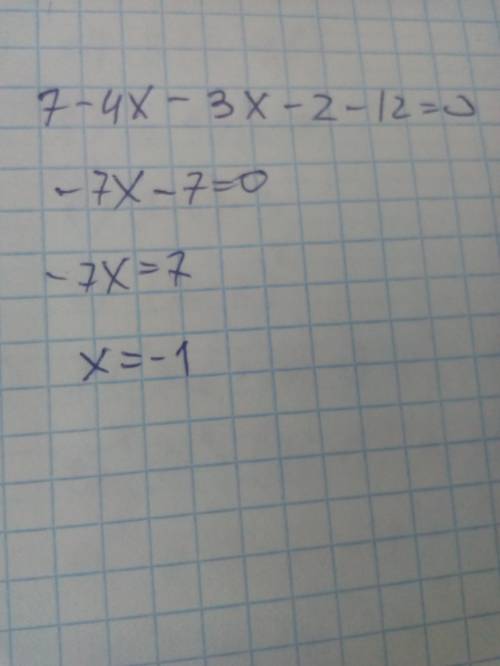 7-4x-3x-2-12=0
-7x-7=0
-7x=7
x=-1